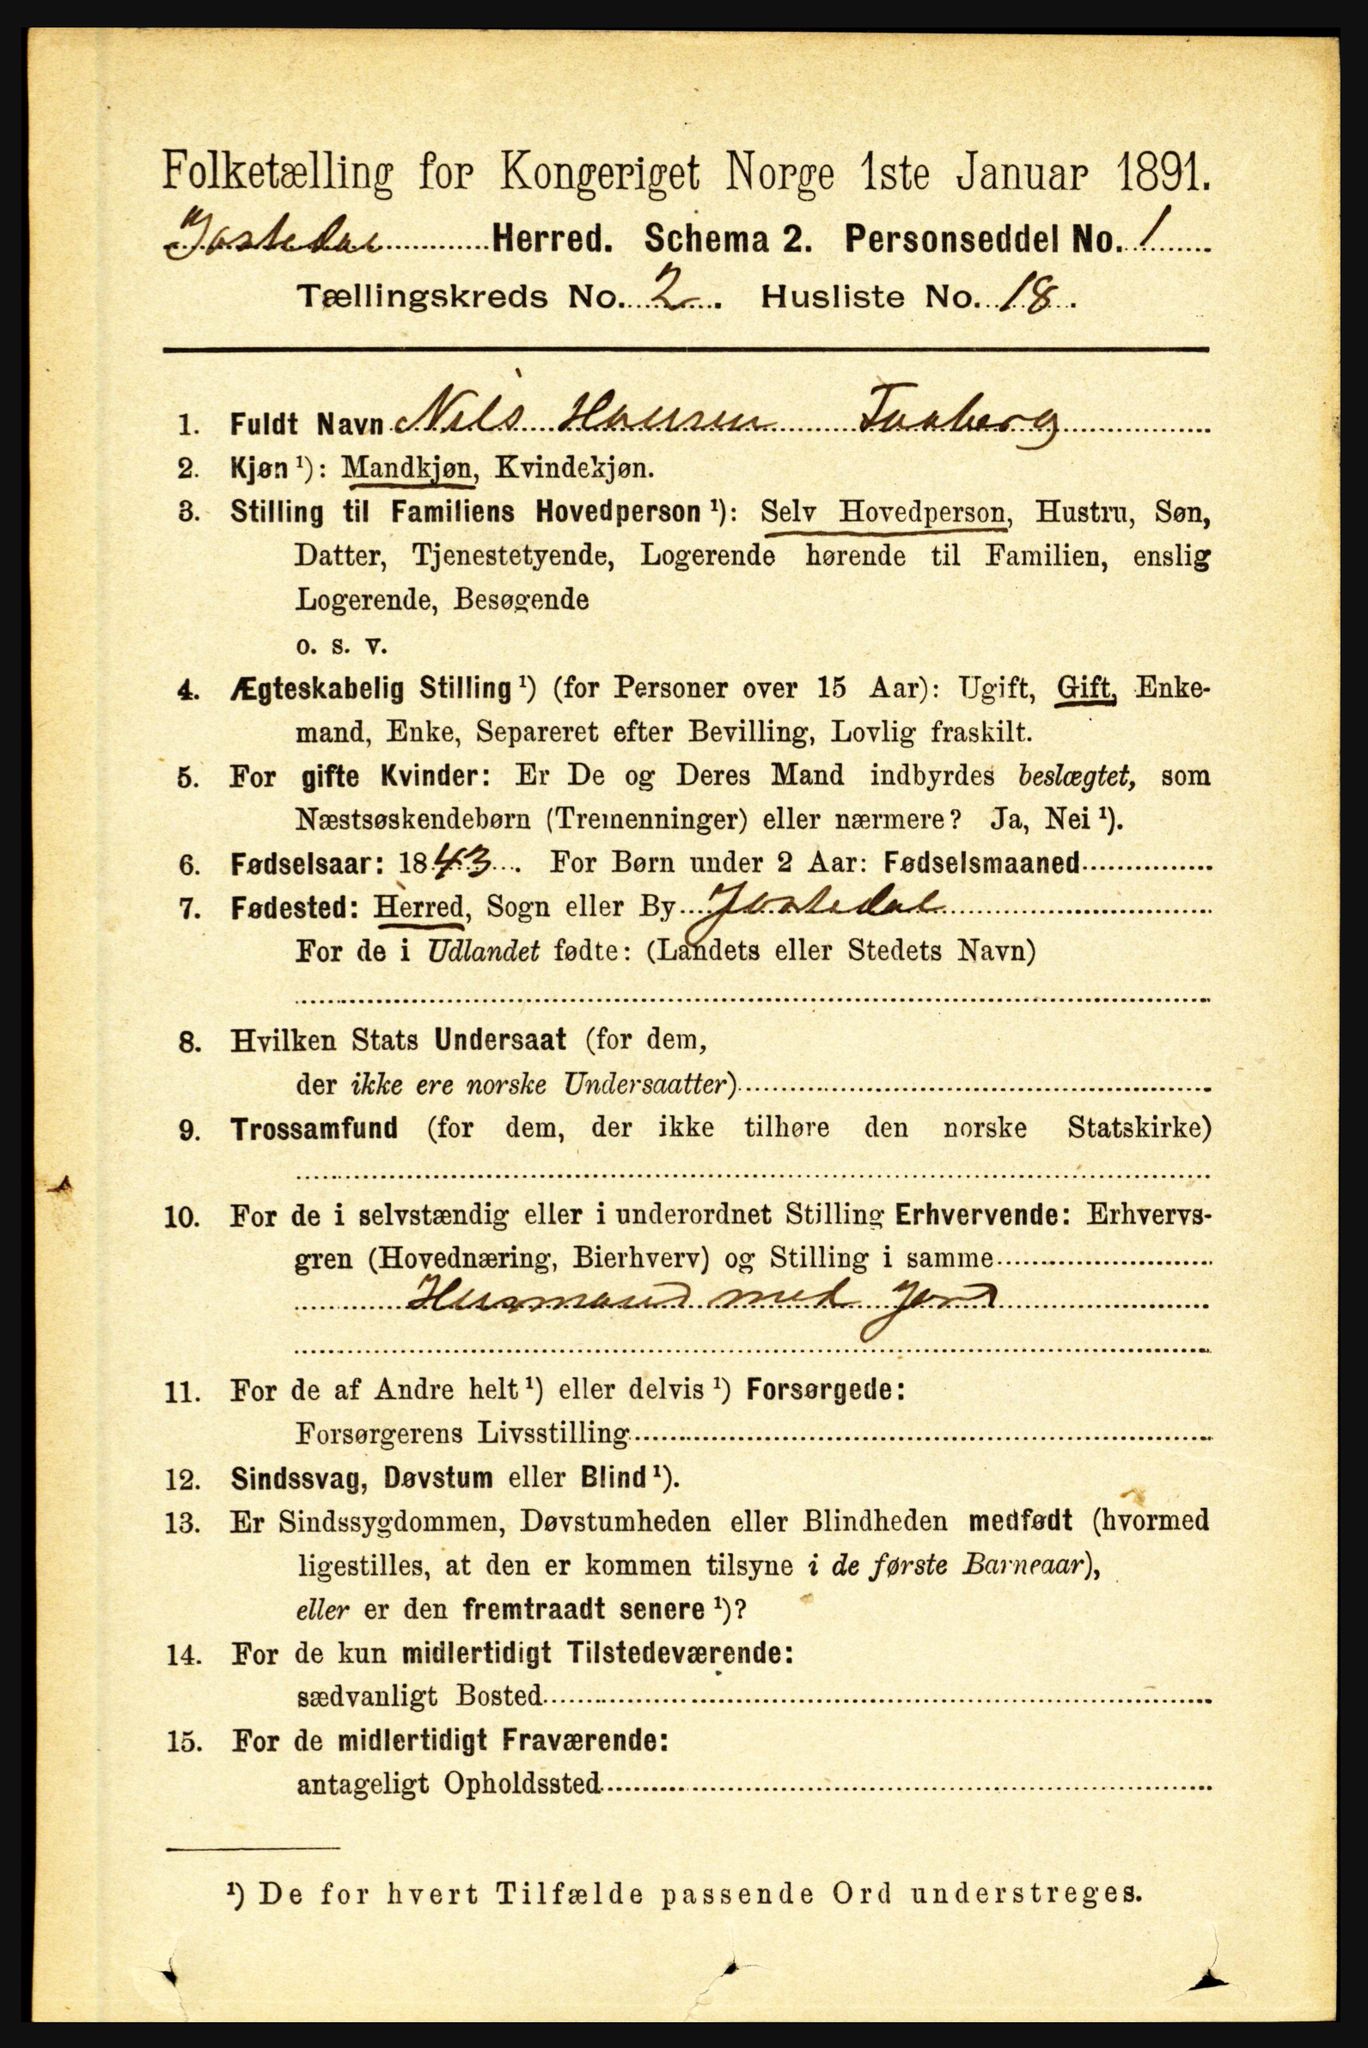 Folketælling for Kongeriget Norge 1ste Januar 1891.
Jostedal Herred. Schema 2. Personseddel No. 1
Tællingskreds No. 2. Husliste No. 18.
1. Fuldt Navn Nils Hansen Faaberg
2. Kjøn ¹): Mandkjøn, Kvindekjøn.
3. Stilling til Familiens Hovedperson ¹): Selv Hovedperson, Hustru, Søn,
Datter, Tjenestetyende, Logerende hørende til Familien, enslig
Logerende, Besøgende
o. s. v.
4. Ægteskabelig Stilling ¹) (for Personer over 15 Aar): Ugift, Gift, Enke-
mand, Enke, Separeret efter Bevilling, Lovlig fraskilt.
5. For gifte Kvinder: Er De og Deres Mand indbyrdes beslægtet, som
Næstsøskendebørn (Tremenninger) eller nærmere? Ja, Nei ¹).
6. Fødselsaar: 1843. For Børn under 2 Aar: Fødselsmaaned
7. Fødested: Herred, Sogn eller By Jostedal
For de i Udlandet fødte: (Landets eller Stedets Navn)
8. Hvilken Stats Undersaat (for dem,
der ikke ere norske Undersaatter)
9. Trossamfund (for dem, der ikke tilhøre den norske Statskirke)
10. For de i selvstændig eller i underordnet Stilling Erhvervende: Erhvervs-
gren (Hovednæring, Bierhverv) og Stilling i samme
Husmand med Jord
11. For de af Andre helt ¹) eller delvis ¹) Forsørgede:
Forsørgerens Livsstilling
12. Sindssvag, Døvstum eller Blind ¹).
13. Er Sindssygdommen, Døvstumheden eller Blindheden medfødt (hvormed
ligestilles, at den er kommen tilsyne i de første Barneaar),
eller er den fremtraadt senere ¹)?
14. For de kun midlertidigt Tilstedeværende:
sædvanligt Bosted
15. For de midlertidigt Fraværende:
antageligt Opholdssted
¹) De for hvert Tilfælde passende Ord understreges.